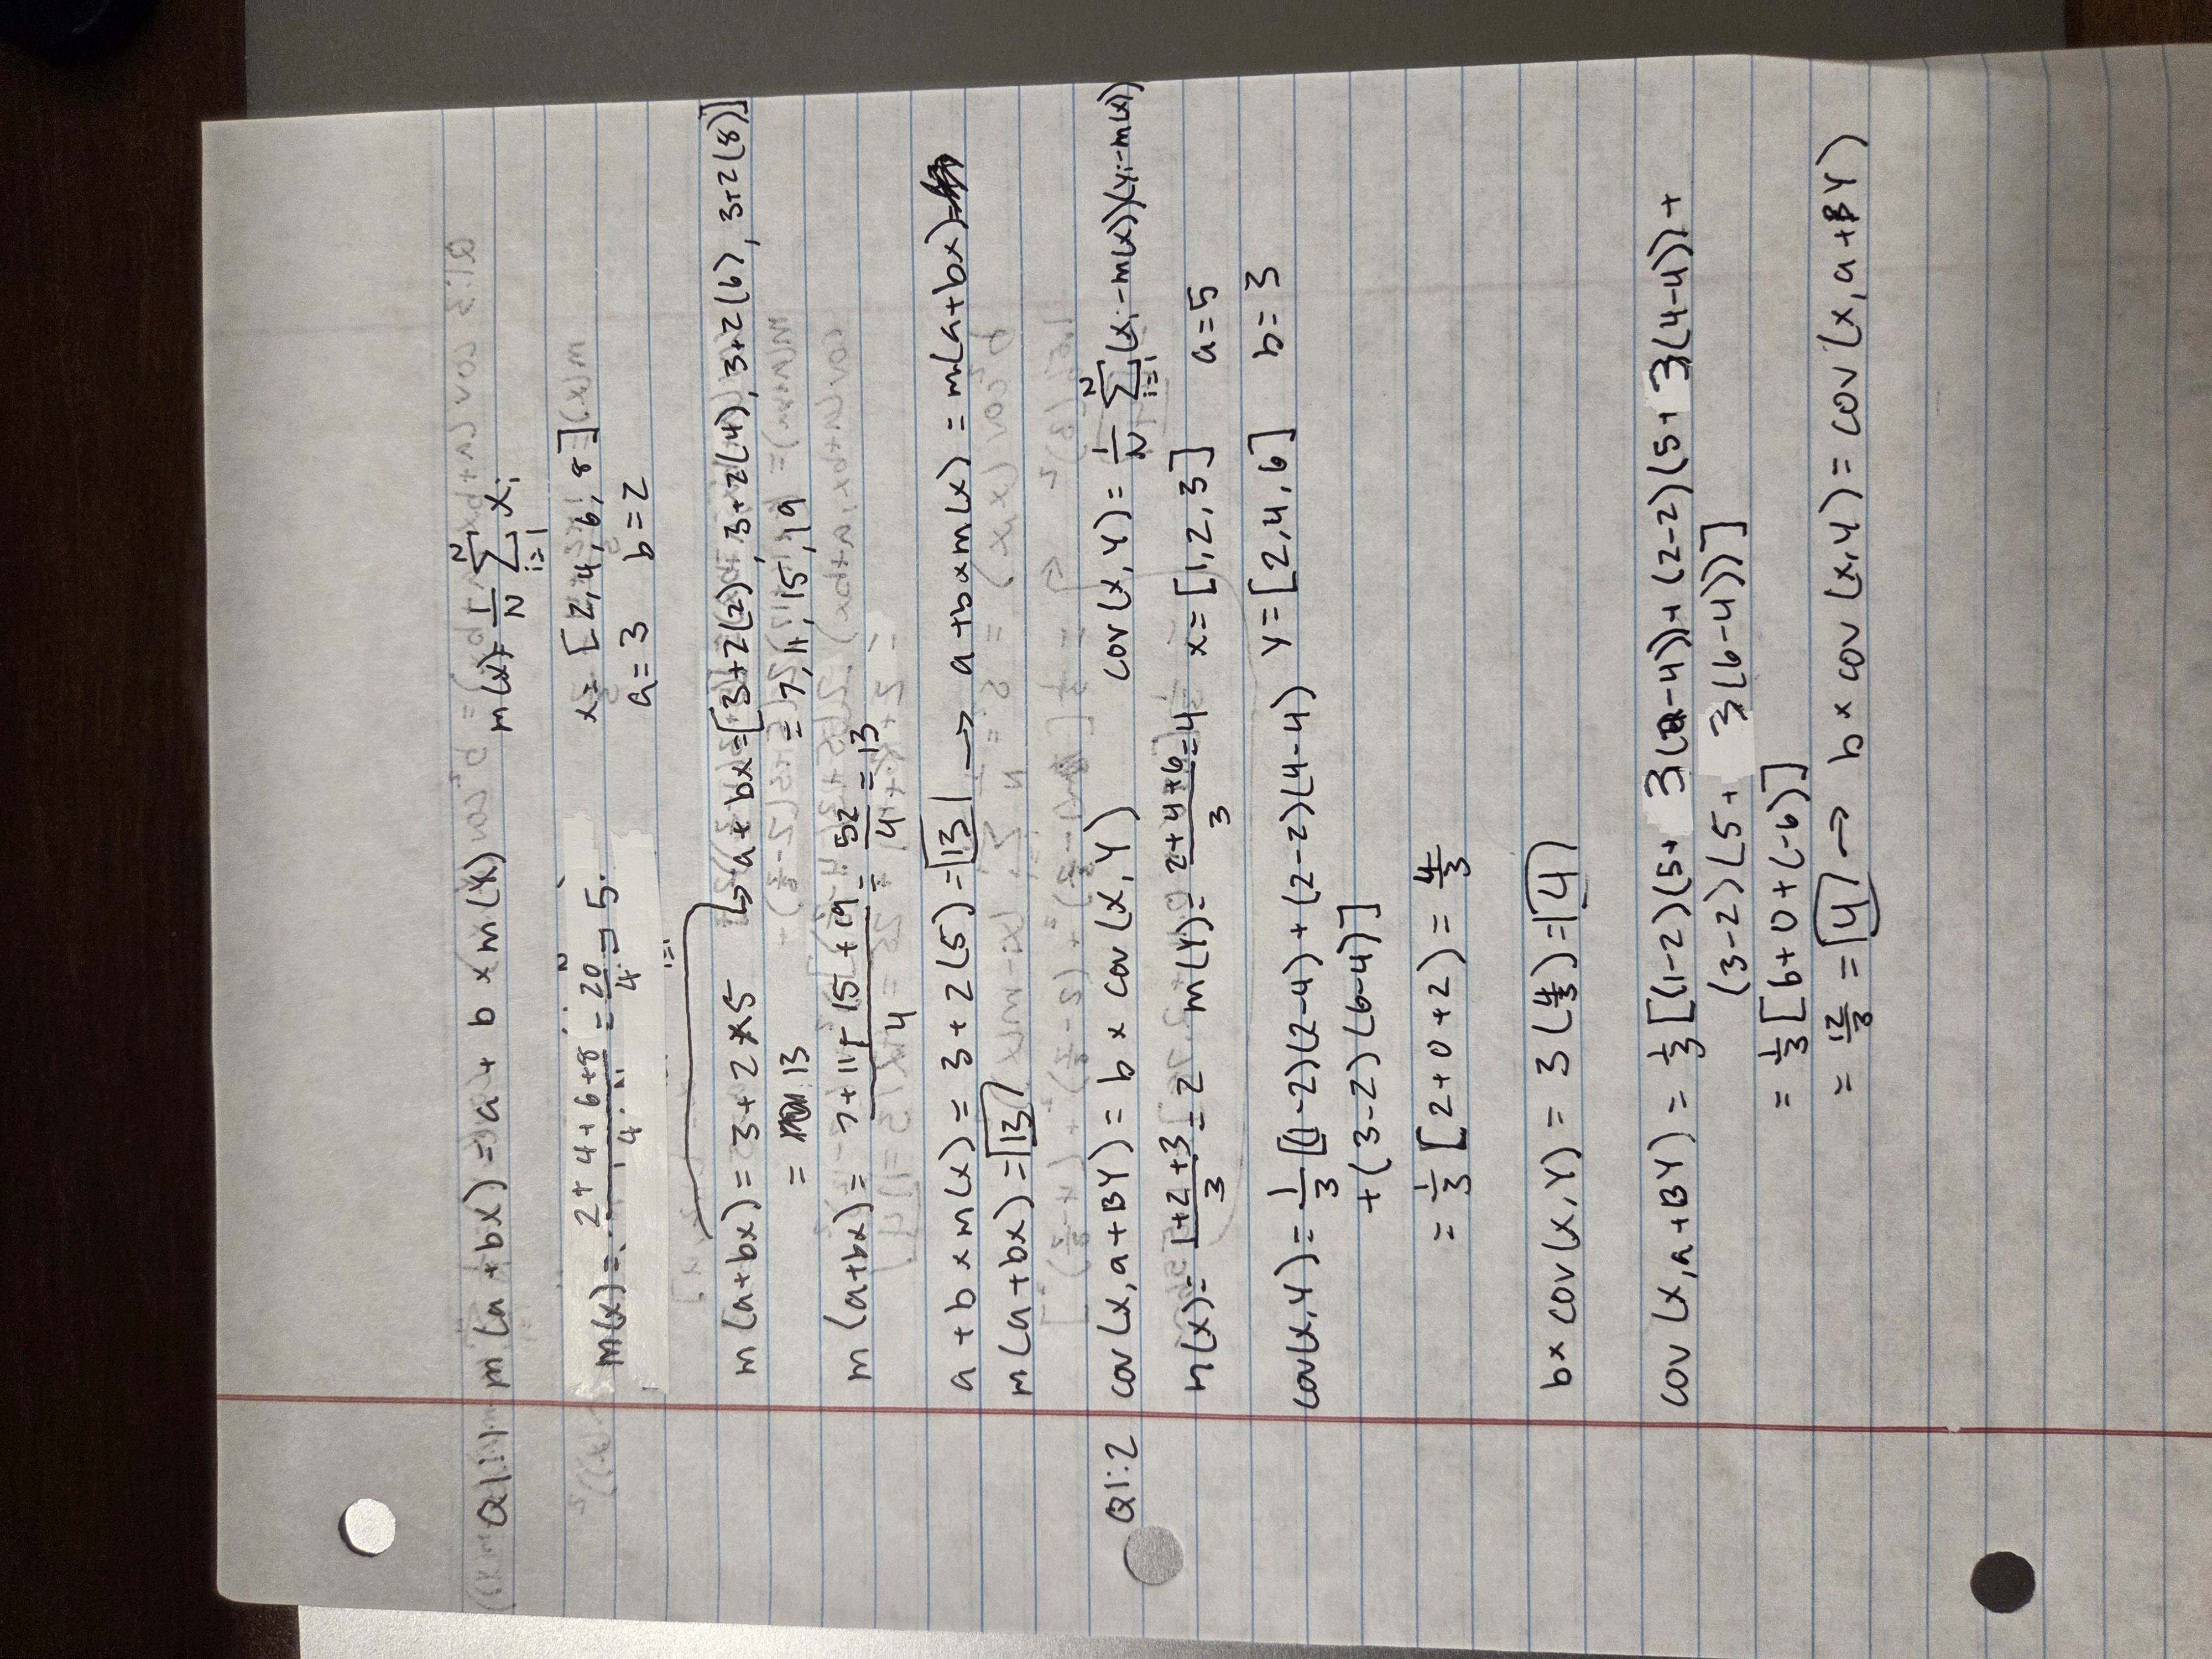 Q1:1 m(a+bX) = a + b × m(X)    m(X) = 1/N ∑_{i=1}^{N} x_i
m(x) = (2+4+6+8)/4 = 20/4 = 5    x = [2, 4, 6, 8]
a = 3   b = 2
m(a+bx) = 3 + 2 × 5   ↳ a + bx = [3+2(2), 3+2(4), 3+2(6), 3+2(8)]
= 13    = 7, 11, 15, 19
m(a+bx) = (7+11+15+19)/4 = 52/4 = 13
a + b × m(x) = 3 + 2(5) = 13 → a + b × m(x) = m(a+bx)
m(a+bx) = 13
Q1:2 cov(X, a+BY) = b × cov(X, Y)    cov(X, Y) = 1/N ∑_{i=1}^{N} (x_i - m(x))(y_i - m(x))
m(x) = (1+2+3)/3 = 2   m(Y) = (2+4+6)/3 = 4   x = [1, 2, 3]   a = 5
Y = [2, 4, 6]   b = 3
cov(X, Y) = 1/3 [(1-2)(2-4) + (2-2)(4-4)
+ (3-2)(6-4)]
= 1/3 [2 + 0 + 2) = 4/3
b × cov(X, Y) = 3(4/3) = 4
cov(X, a+BY) = 1/3 [(1-2)(5+ 3(2-4)) + (2-2)(5+ 3(4-4)) +
(3-2)(5+ 3(6-4))]
= 1/3 [6 + 0 + (-6)]
= 12/3 = 4 → b × cov(x, y) = cov(X, a+BY)